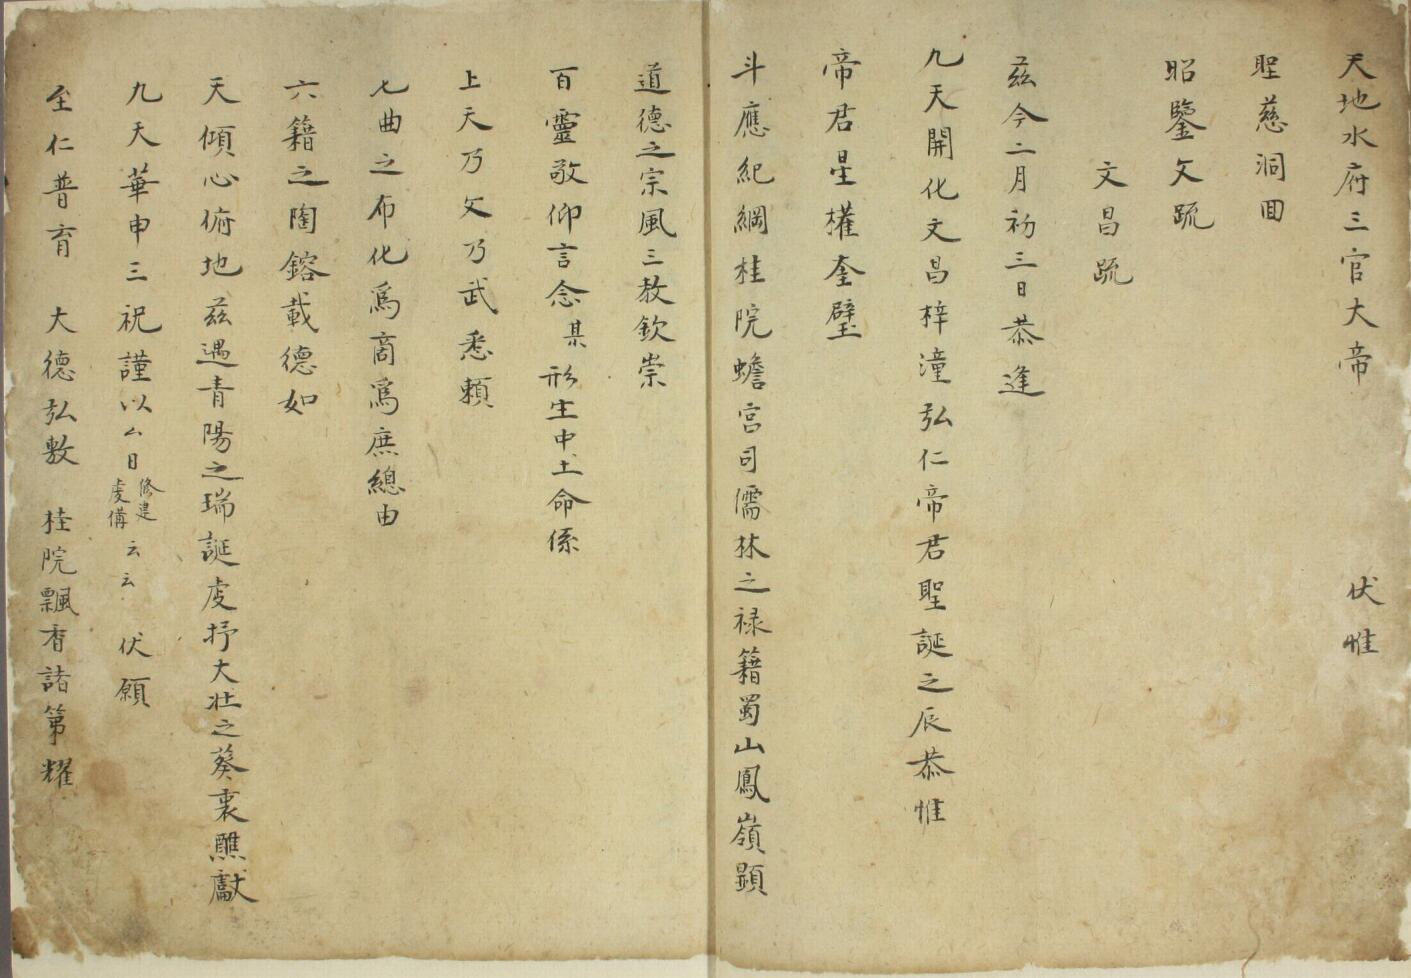 天地水府三官大帝　伏惟
聖慈洞回
昭鑒文疏
文昌疏
茲今二月初三日恭逢
九天開化文昌梓潼弘仁帝君聖誕之辰恭惟
帝君星權奎壁
斗應紀綱桂院蟾宮司儒林之禄籍蜀山鳳嶺顯
道德之宗風三教欽崇
百靈敬仰言念某形生中土命係
上天乃文乃武悉賴
七曲之布化爲商爲庶總由
六籍之陶鎔載德如
天傾心俯地茲遇青陽之瑞誕虔抒大壯之葵衷醮獻
九天華申三祝謹以厶日修建虔備云云　伏願
至仁普育　大德弘敷　桂院飄香諸第耀